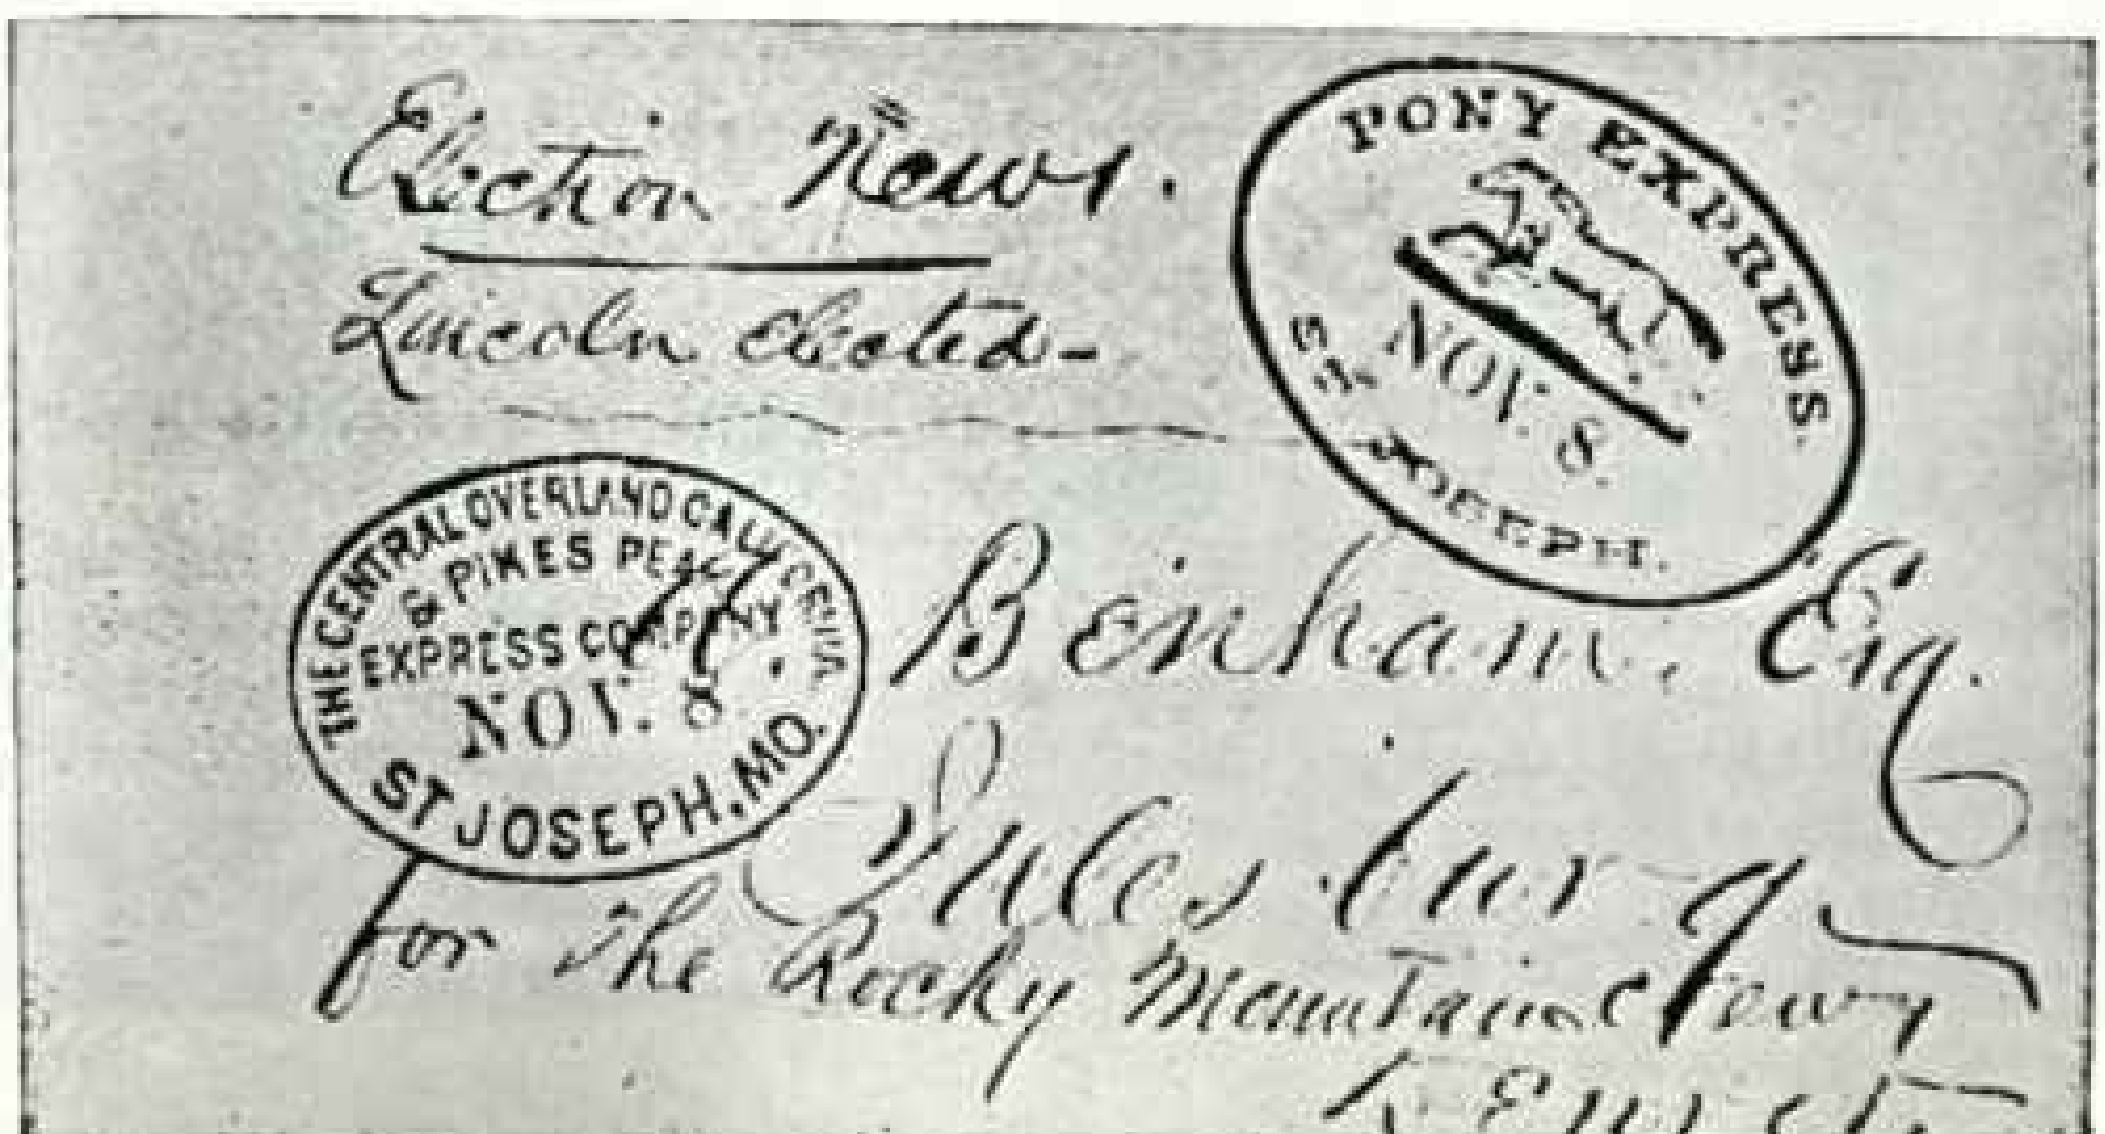 Election News.
Lincoln elected-
PONY EXPRESS.
NOV. 8.
ST. JOSEPH.
THE CENTRAL OVERLAND CALIFORNIA
& PIKES PEAK
EXPRESS COMPANY
NOV. 8.
ST JOSEPH, MO.
Benham. Esq.
Jules burg
for the Rocky Mountain News